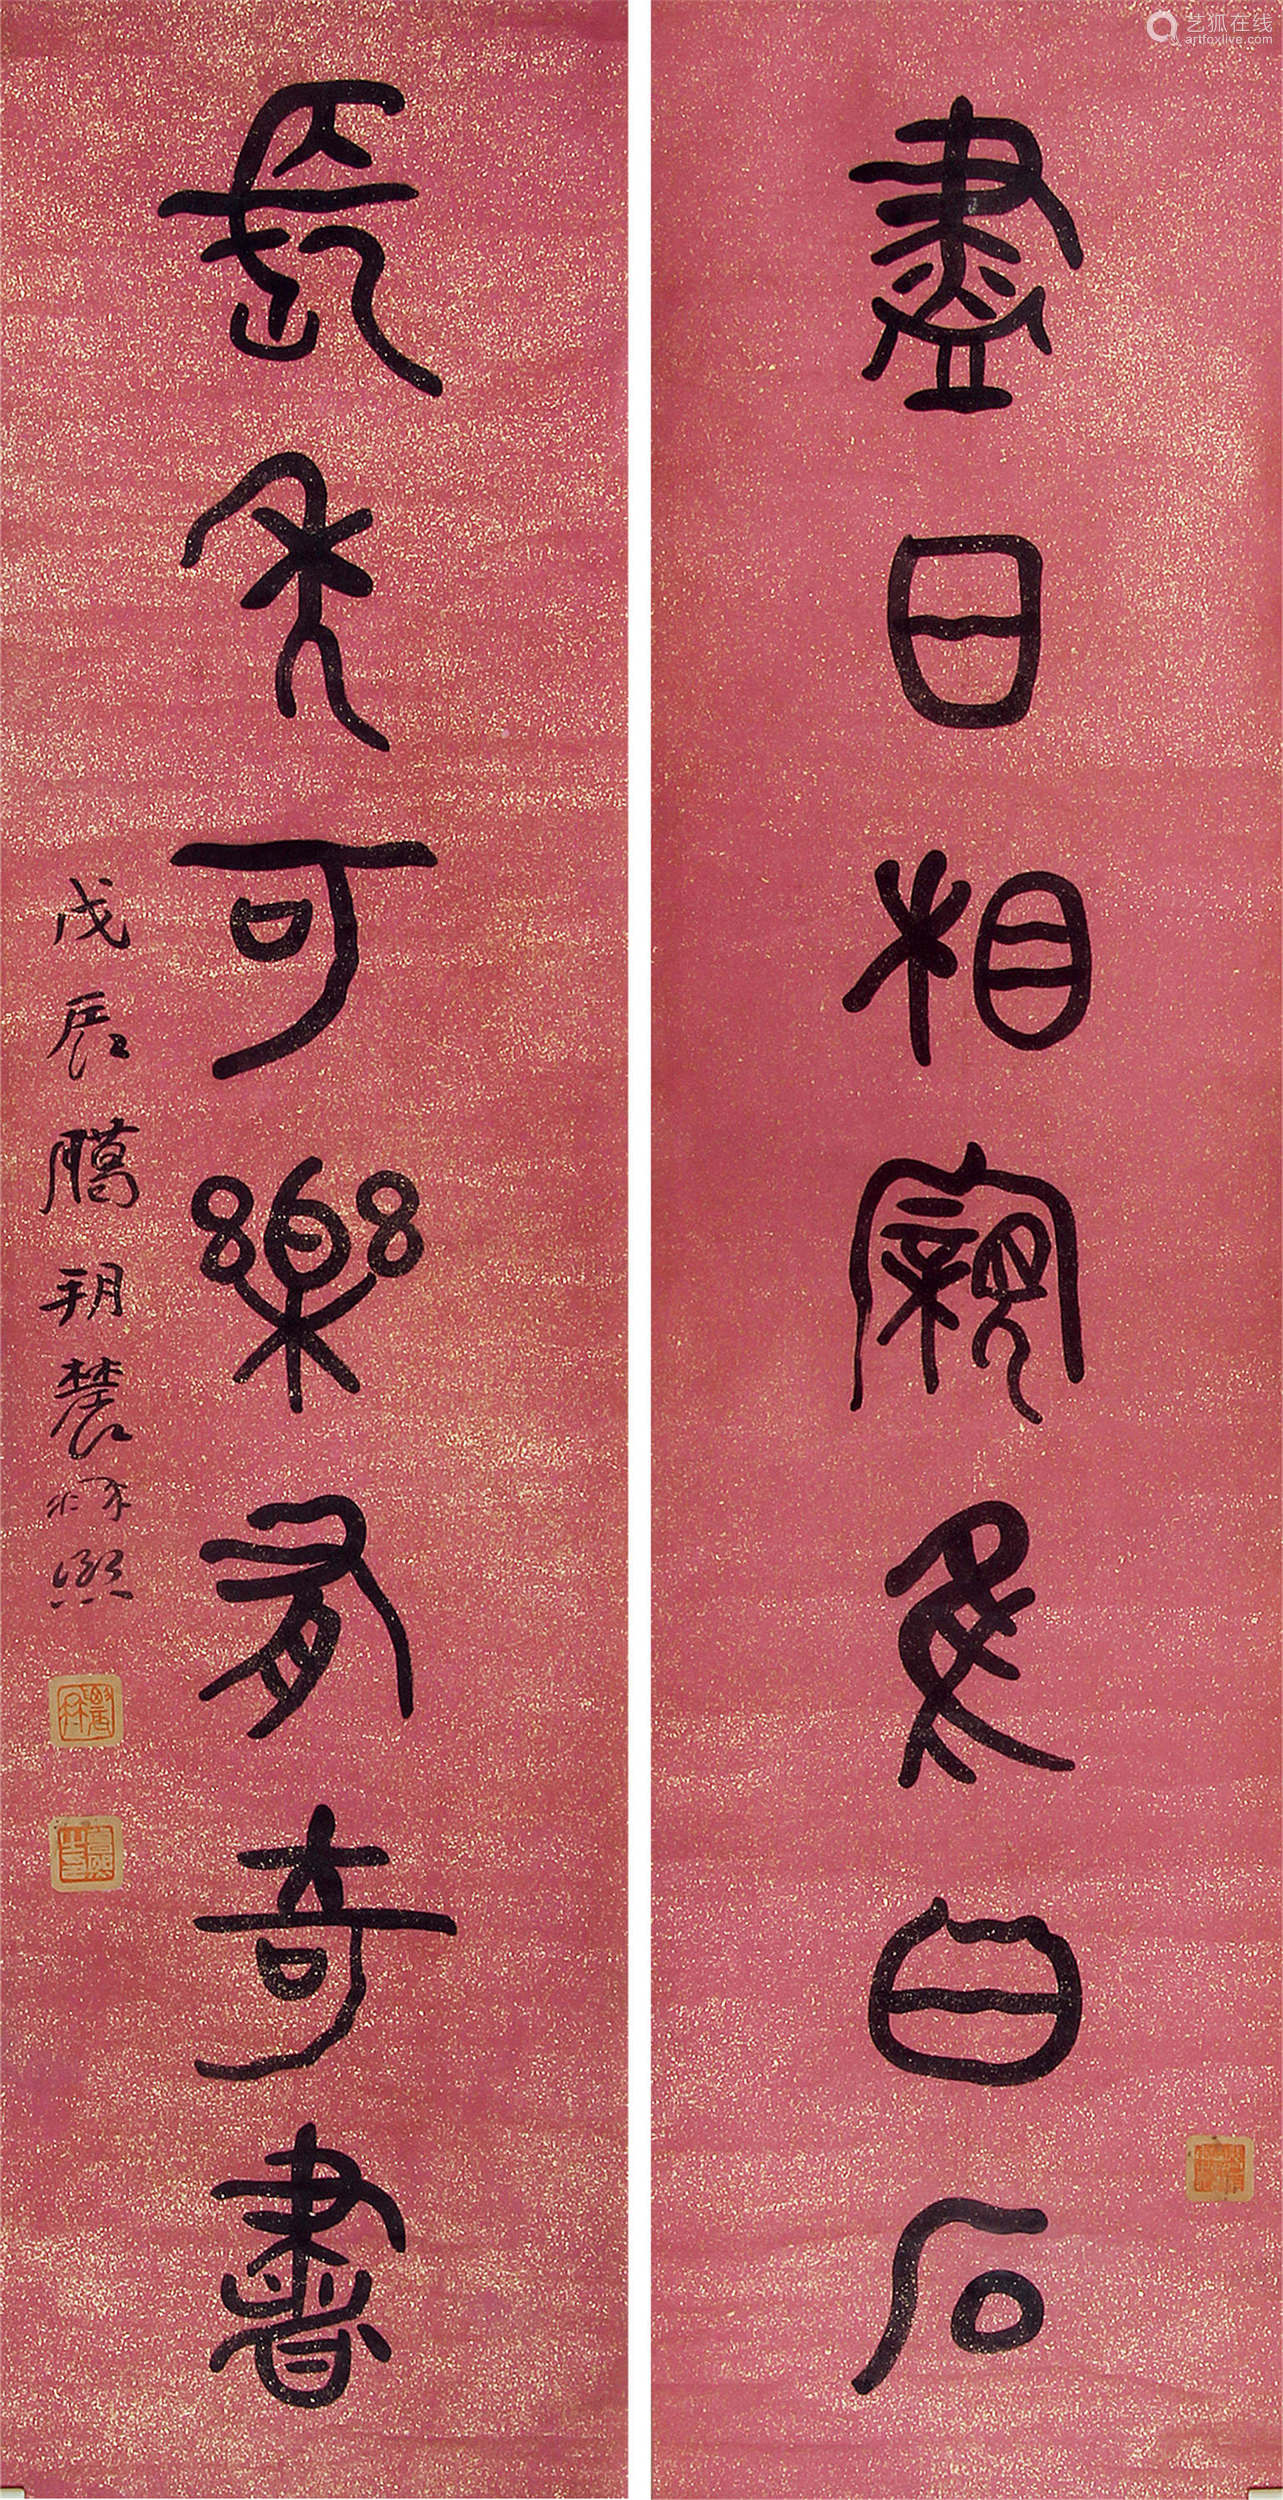 盡日相親惟白石
長年可樂有奇書
戊辰臘朔農
艺狐在线
artfoxlive.com